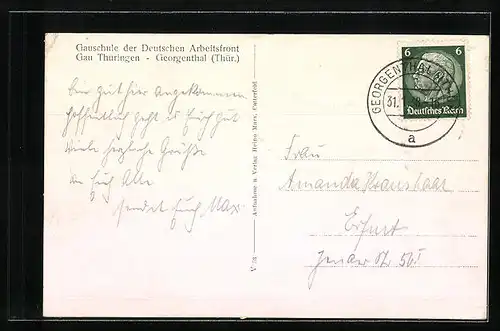 Gauschule der Deutschen Arbeitsfront
Gau Thüringen - Georgenthal (Thür.)
Bin gut hier angekommen
hoffentlich geht es Euch gut
Viele herzliche Grüße
an Euch Alle
sendet Euch Max
V 78 Aufnahme u. Verlag
6 6
Deutsches Reich
GEORGENTHAL
31.
a
Frau
Amanda Kraushaar
Erfurt
Jenaer Str. 56 I